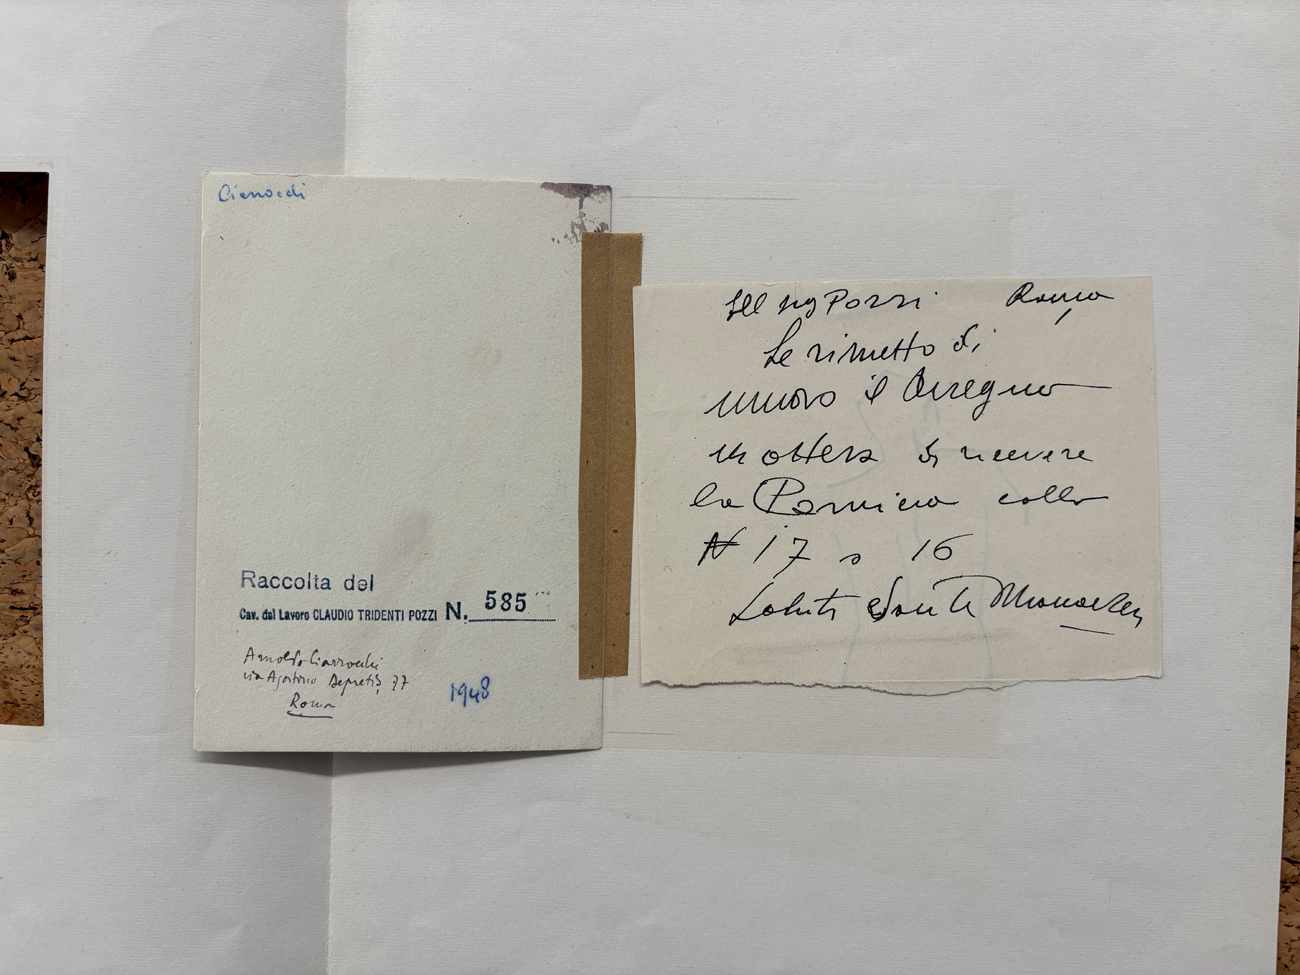 Ciarrocchi
Raccolta del
Cav. del Lavoro CLAUDIO TRIDENTI POZZI N. 585
Arnoldo Ciarrocchi
via Agostino Depretis, 77
Roma
1948
Ill sig Pozzi Roma
Le rimetto di
nuovo il disegno
in attesa di ricevere
la Camicia collo
N 17 o 16
Saluti Sante Monachesi